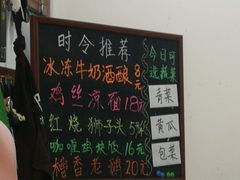 时令推荐
冰冻牛奶酒酿8元
鸡丝凉面18元
红烧狮子头5元
咖喱鸡块饭16元
糟香老鸭20元
今日时
迷推菜
青菜
黄瓜
包菜